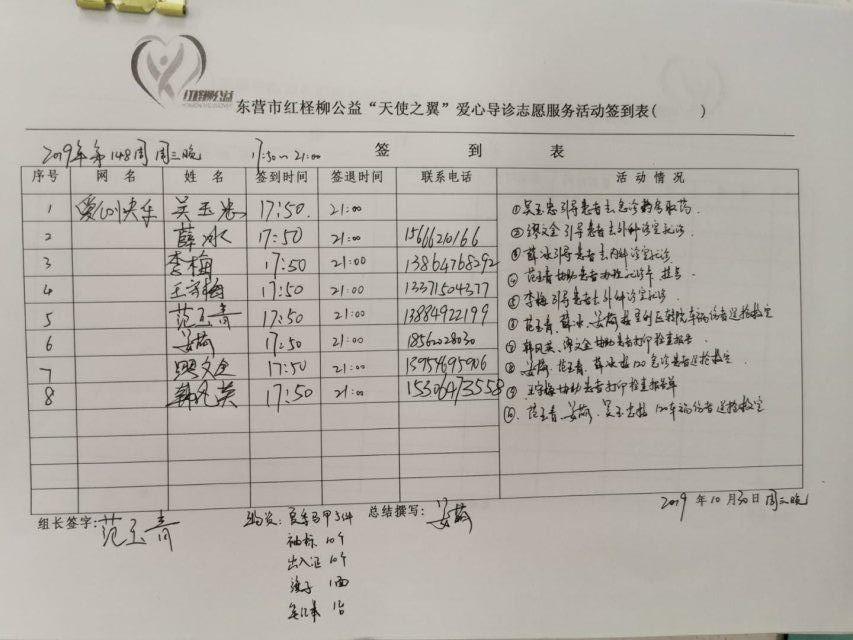 红柽柳公益
东营市红柽柳公益“天使之翼”爱心导诊志愿服务活动签到表( )
2019年第148周 周三晚 17:30~21:00 签 到 表
序号 网 名 姓 名 签到时间 签退时间 联系电话 活 动 情 况
1 快乐 吴玉忠 17:50. 21:00
2 薛冰 17:50 21:00 15666210166
3 李梅 17:50 21:00 13864768292
4 王守梅 17:50 21:00 13371504377
5 范玉青 17:50 21:00 13884922199
6 姜荷 17:50 21:00 18562028030
7 文全 17:50 21:00 13954695906
8 韩风英 17:50 21:00 15306473558
①吴玉忠引导患者去急诊药房取药.
②缪文全引导患者去外科诊室就诊.
③薛冰引导患者去内科诊室就诊.
④范玉青协助患者办理就诊卡 挂号
⑤李梅引导患者去外科诊室就诊
⑥范玉青、薛冰、姜荷接利区转院车祸伤者送抢救室
⑦韩风英、缪文全协助患者打印检查报告
⑧姜荷、范玉青、薛冰接120急诊患者送抢救室
⑨王守梅协助患者打印检查报告单
⑩范玉青、姜荷、吴玉忠接120车祸伤者送抢救室
2019年10月30日 周三晚
组长签字: 范玉青 物资: 马甲 件 总结撰写: 姜荷
袖标 10个
出入证 10个
旗子 1面
1台